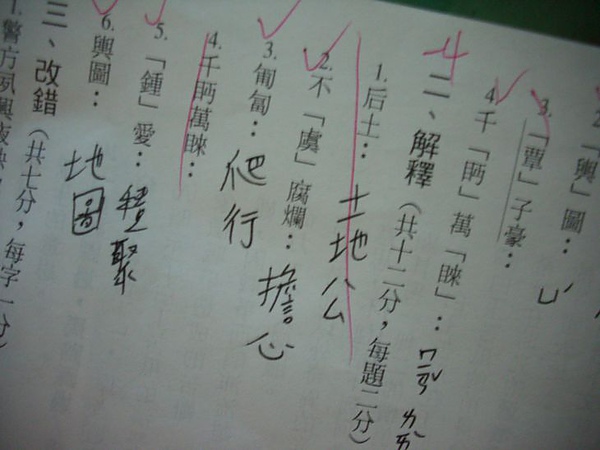 2.「輿」圖：
3.「覃」子豪：
4.千「眄」萬「睞」：ㄇㄧㄢˇ ㄌㄞˋ
-4
二、解釋（共十二分，每題二分）
1.后土：土地公
2.不「虞」腐爛：擔心
3.匍匐：爬行
4.千眄萬睞：
5.「鍾」愛：積聚
6.輿圖：地圖
三、改錯（共七分，每字一分）
1.警方夙興夜